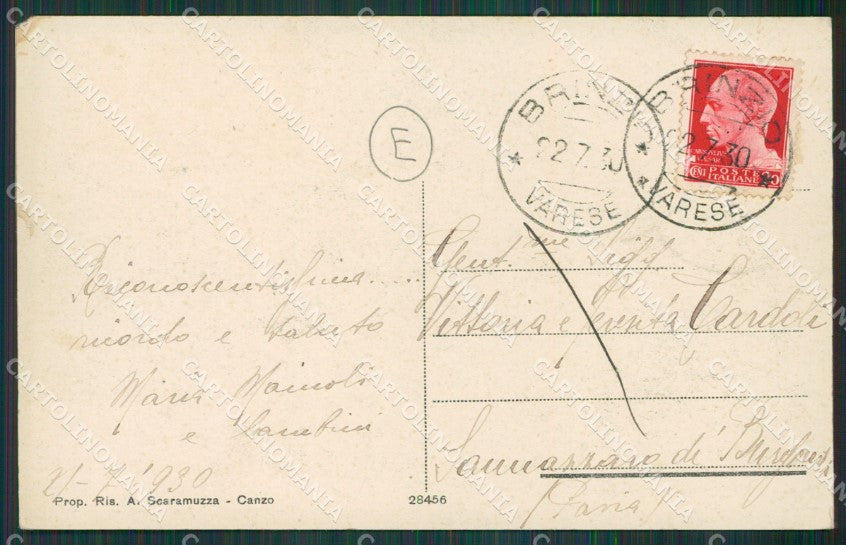 E
BRINZIO
22.7.30
VARESE
BRINZIO
22.7.30
VARESE
POSTE
ITALIANE
CENT
20
Riconoscentissima.....
ricordo e saluto
Maria Mainoli
e bambini
21-7-930
Prop. Ris. A. Scaramuzza - Canzo
28456
Gent.me Sigg
Vittoria e
Sannazzaro de'
(Pavia)
CARTOLINOMANIA